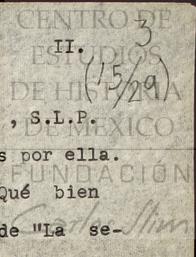 II. 3
(15/29)
, S.L.P.
s por ella.
Qué bien
de "La se-
CENTRO DE
ESTUDIOS
DE HISTORIA
DE MÉXICO
FUNDACIÓN
Carlos Slim